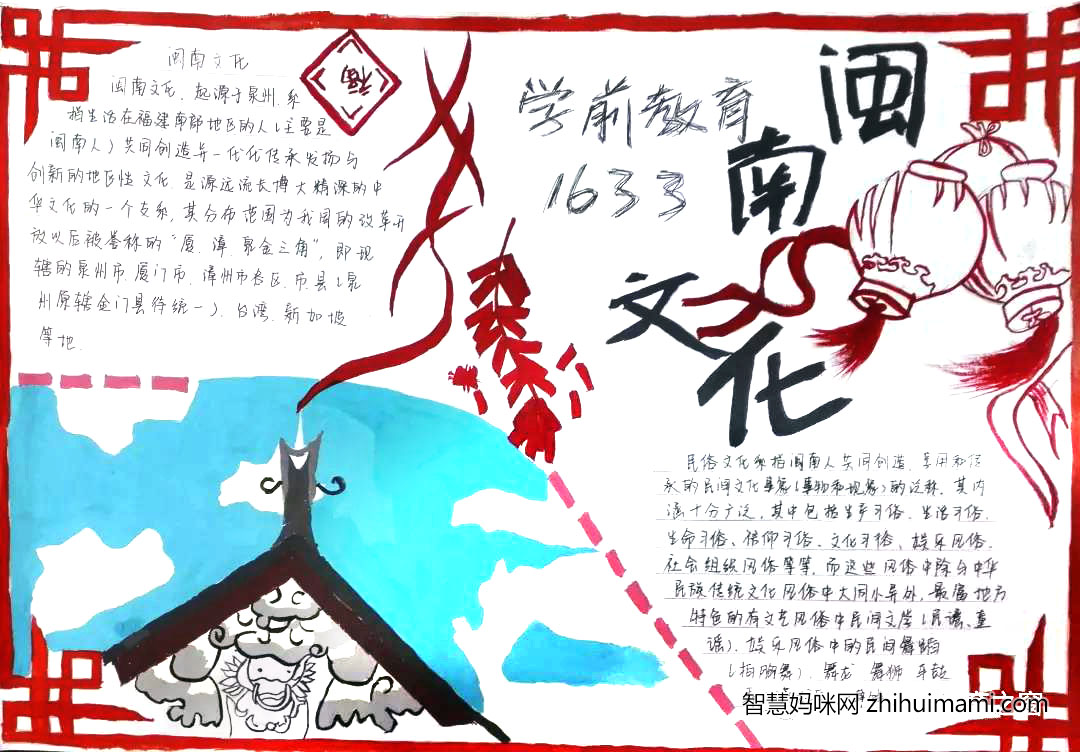 闽南文化
福
闽南文化，起源于泉州，系
指生活在福建南部地区的人（主要是
闽南人）共同创造并一代代传承发扬与
创新的地区性文化，是源远流长博大精深的中
华文化的一个支系，其分布范围为我国的改革开
放以后被誉称的“厦、漳、泉金三角”，即现
辖的泉州市、厦门市、漳州市各区、市县（泉
州原辖金门县待统一）、台湾、新加坡
等地.
学前教育
1633
闽南文化
民俗文化系指闽南人共同创造、享用和传
承的民间文化事象（事物和现象）的泛称，其内
涵十分广泛，其中包括生产习俗、生活习俗、
生命习俗、信仰习俗、文化习俗、娱乐风俗、
社会组织风俗等等，而这些风俗中除与中华
民族传统文化风俗中大同小异外，最富地方
特色的有文艺风俗中民间文学（民谣、童
谣）、娱乐风俗中的民间舞蹈
（拍胸舞）、舞龙 舞狮 车鼓
智慧妈咪网 zhihuimami.com